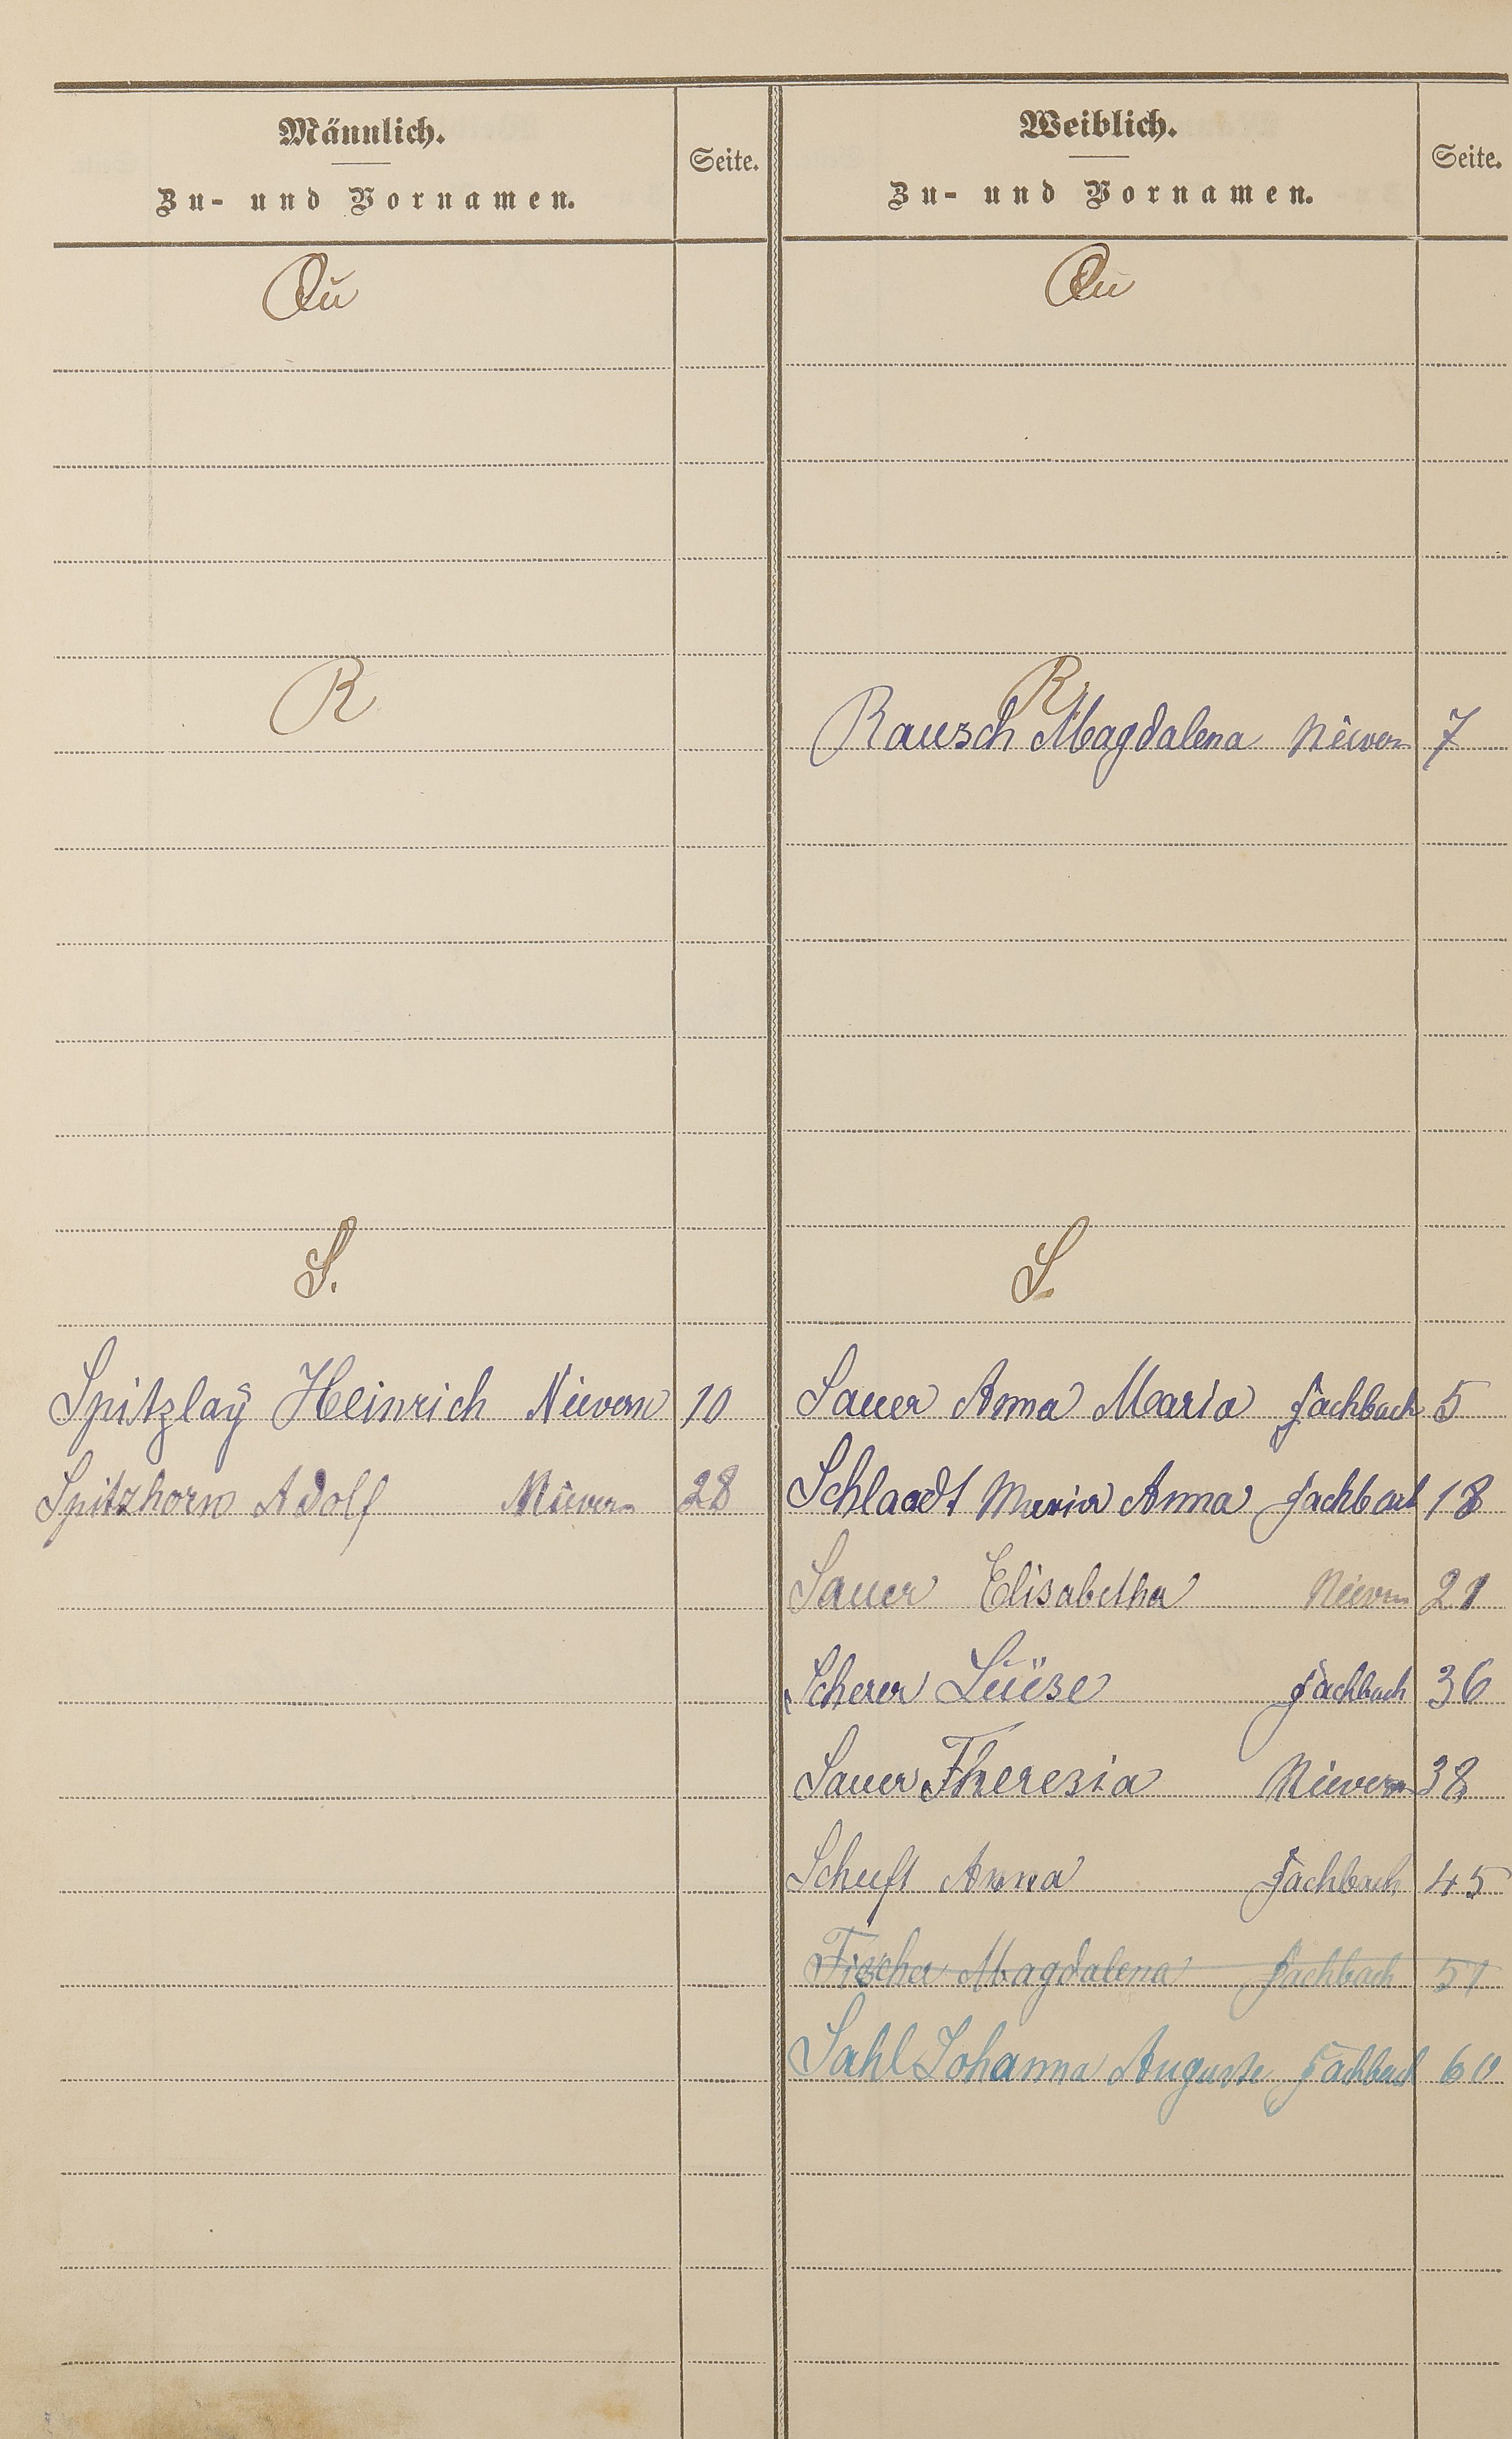 Männlich.
Zu- und Vornamen.
Seite.
Weiblich.
Zu- und Vornamen.
Seite.
Qu
Qu
R
R
Rausch Magdalena Nievern 7
S.
S.
Spitzlaÿ Heinrich Nievern 10
Spitzhorn Adolf Nievern 28
Sauer Anna Maria Fachbach 5
Schlaadt Maria Anna Fachbach 18
Sauer Elisabetha Nievern 21
Scherer Fachbach 36
Sauer Theresia Nievern 38
Schuft Anna Fachbach 45
Fischer Magdalena Fachbach 51
Sahl Johanna Auguste Fachbach 60